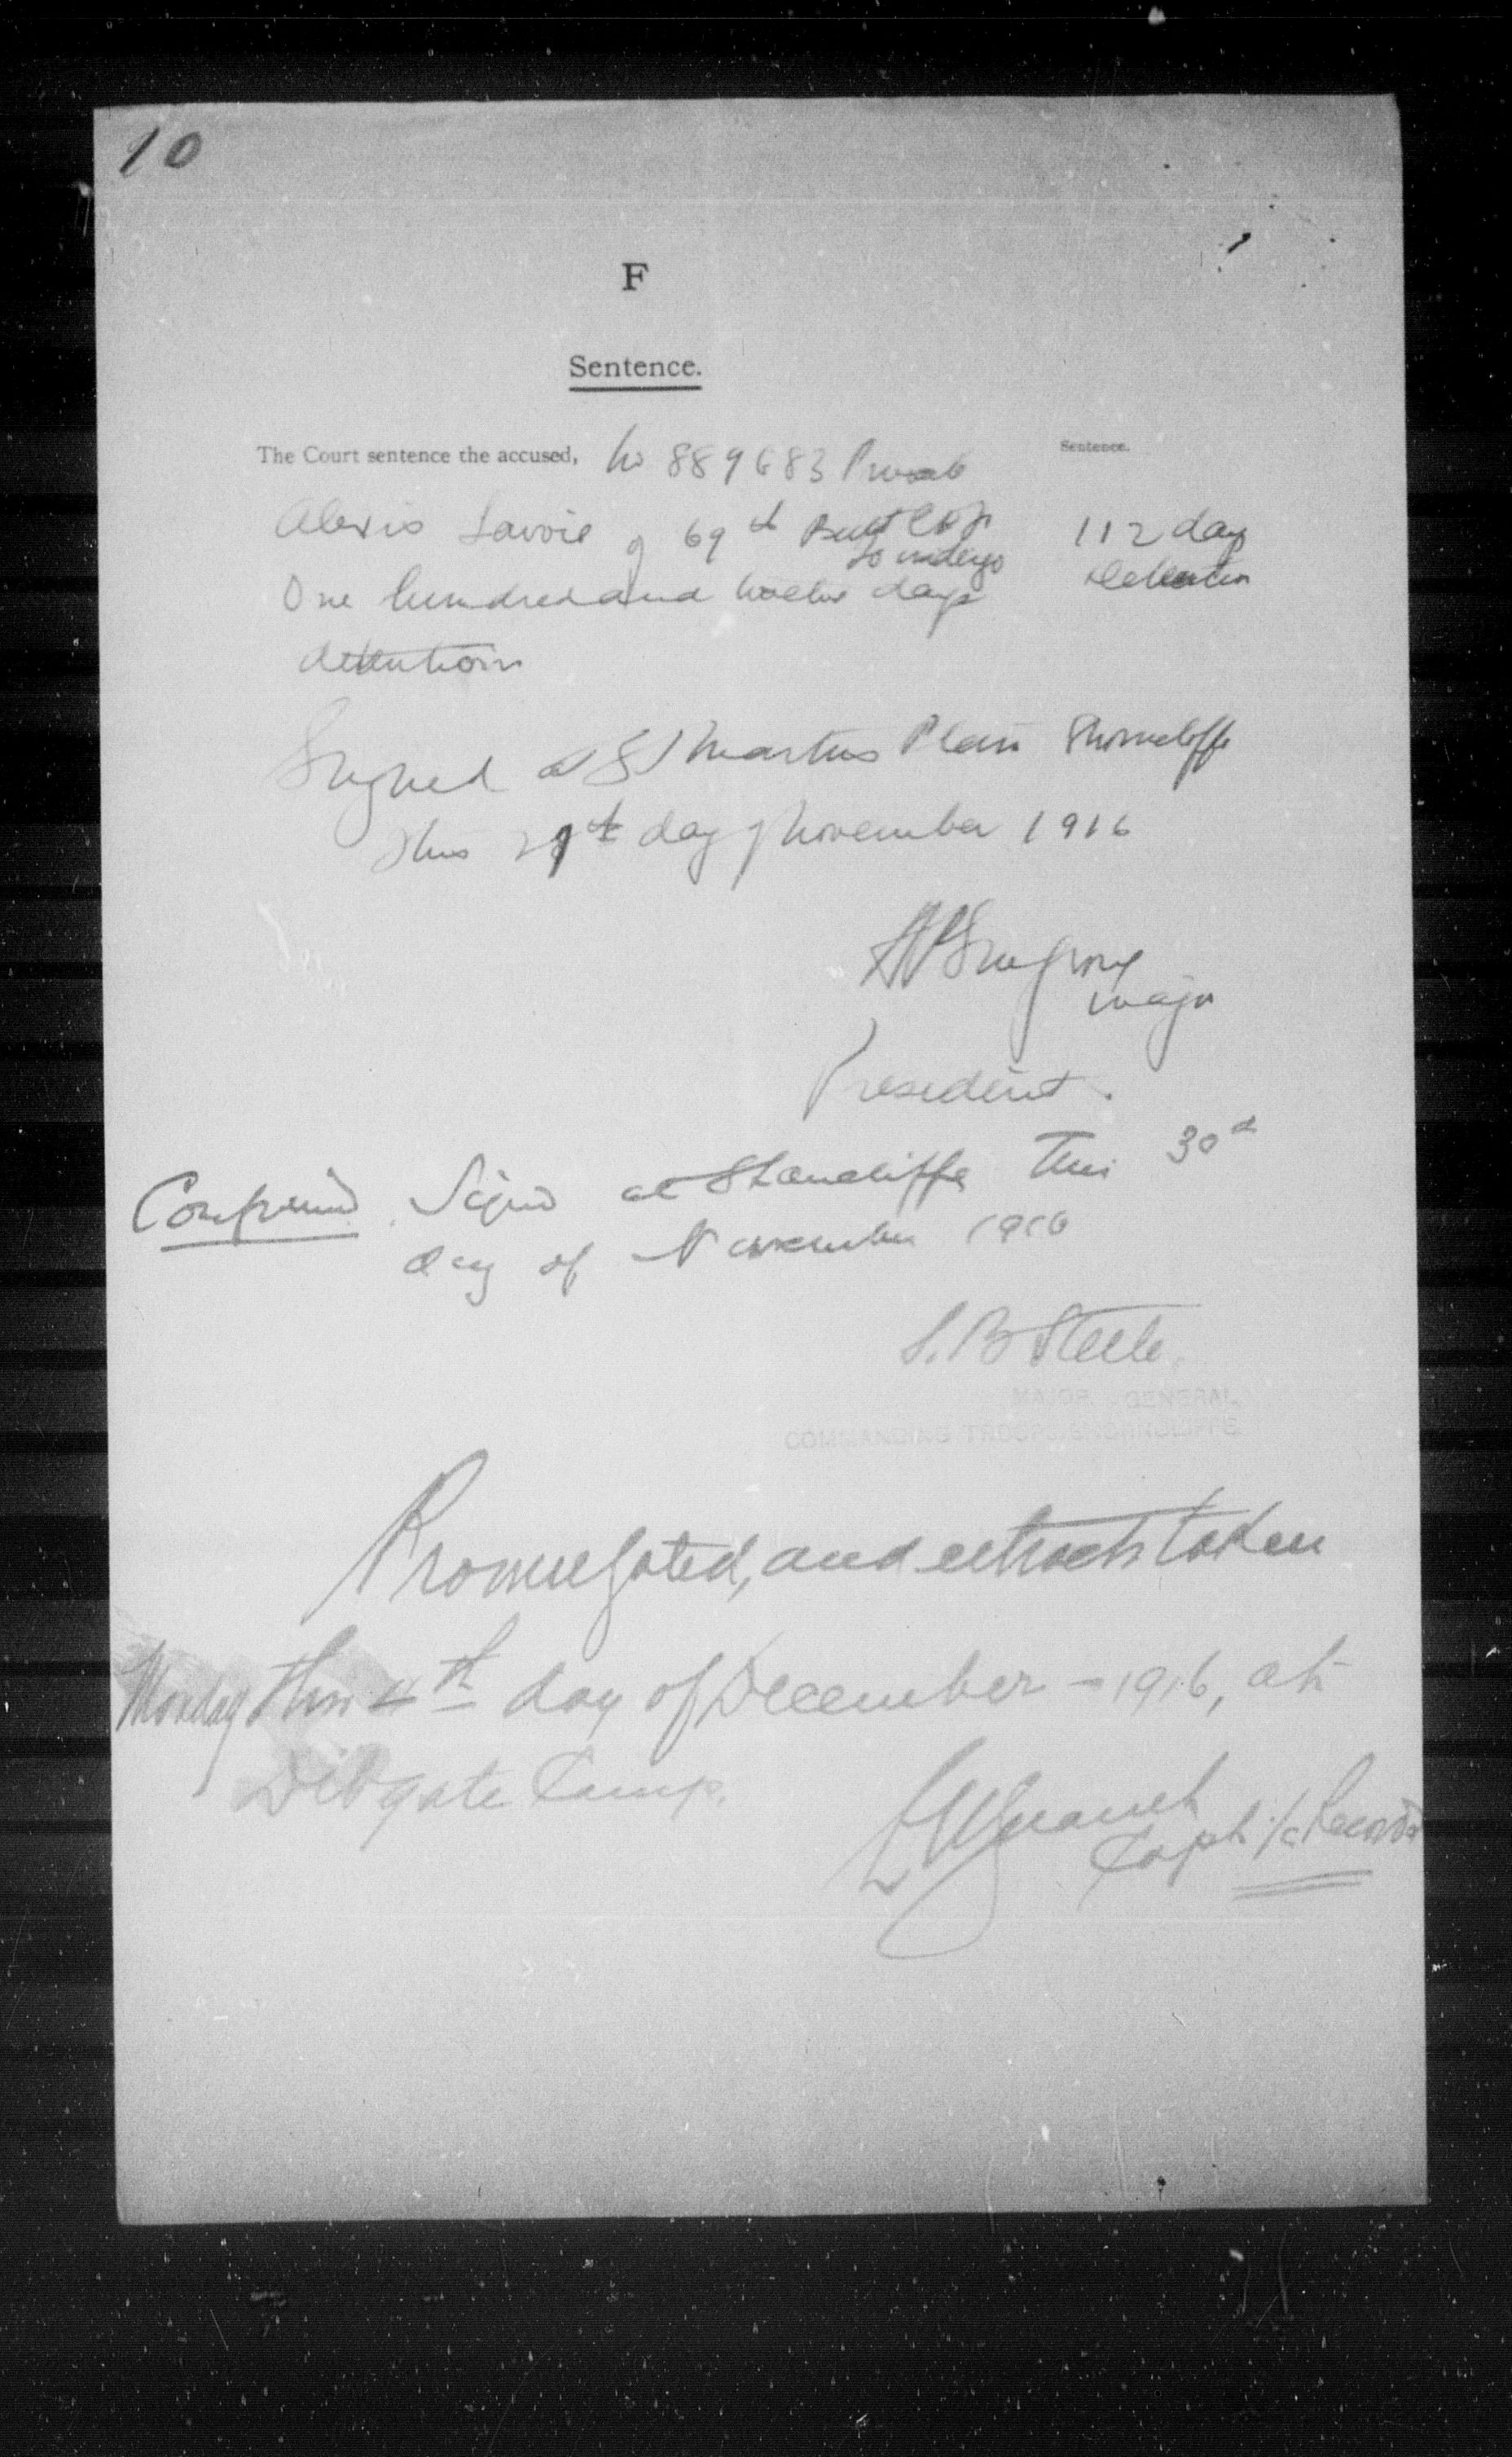 10
F
Sentence.
The Court sentence the accused, No 889683 Private
Sentence.
Alexis Lavoie of 69th Batt CEF
to undergo
112 days
One hundred and twelve days
Detention
detention
Signed at St Martins Plain Shorncliffe
this day of November 1916
Major
President.
Confirmed. Signed at Shorncliffe this 30th
day of November 1916
S. B Steele.
MAJOR GENERAL
COMMANDING TROOPS SHORNCLIFFE
Promulgated, and extracts taken
Monday this 4th day of December - 1916, at
Dibgate Camp.
Capt i/c Records